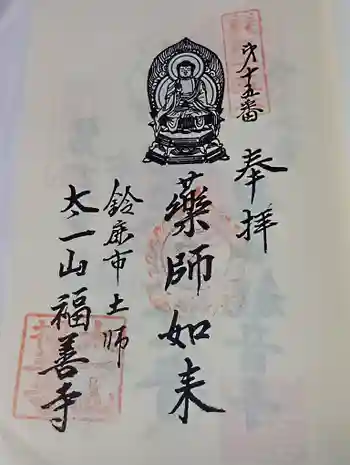 第十五番
奉拝
薬師如来
鈴鹿市土師
太一山福善寺